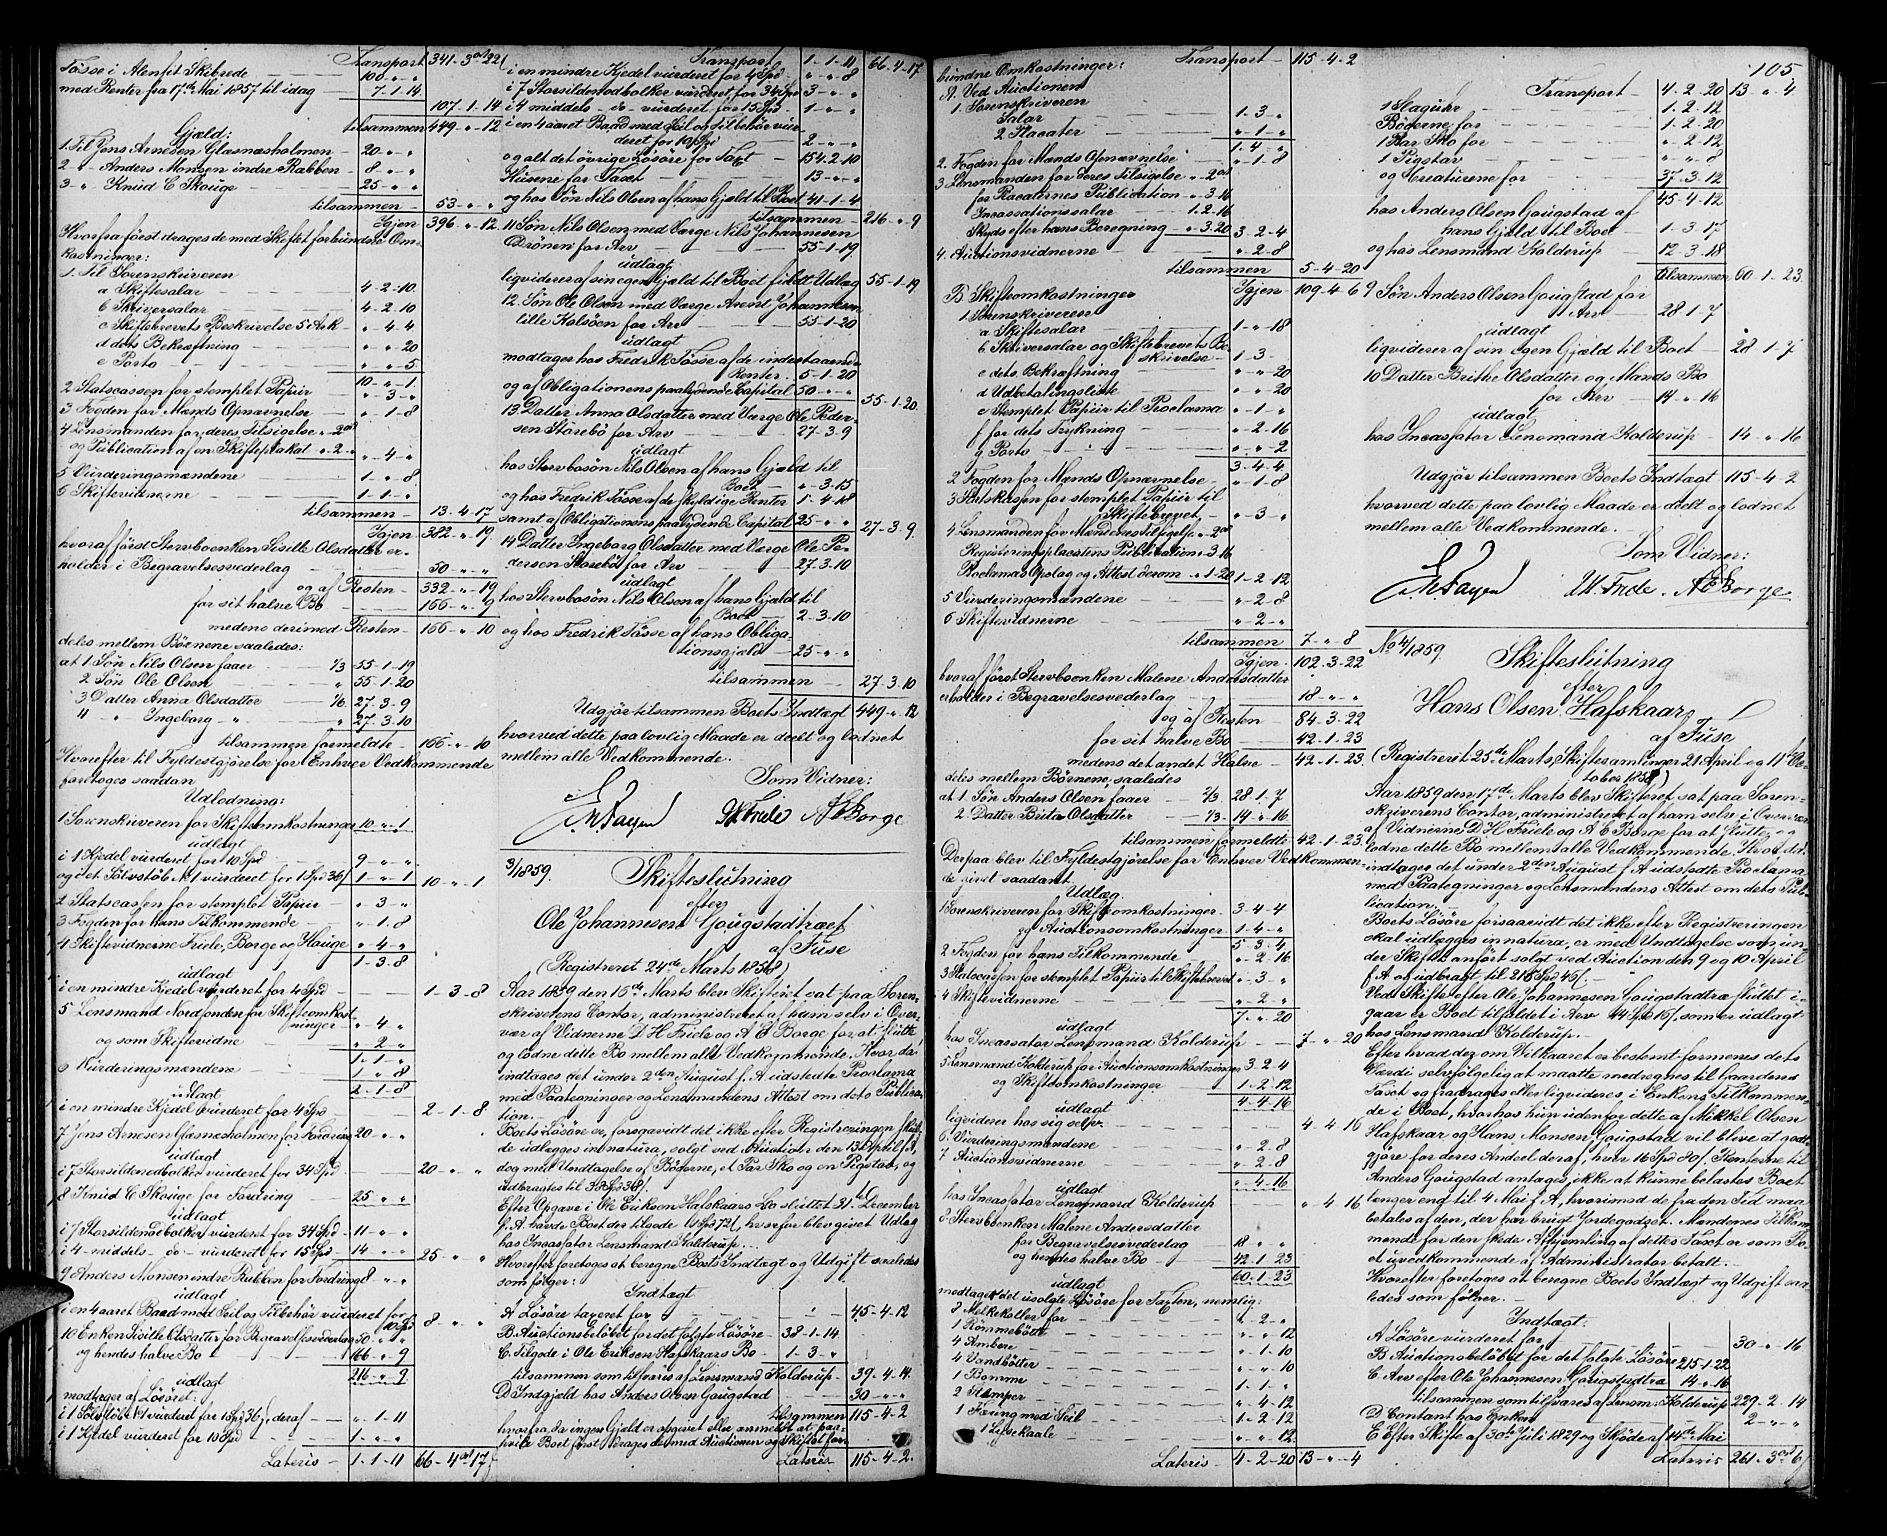 Transport 341-3-22
Tösse i Alenfit Skibrede 100 " "
med Renter fra 17de Mai 1857 til idag 7-1-14
107-1-14
tilsammen 449-"-12
Gjæld:
1 Til Jens Arnesen Glæsnæsholmen 20-"-"
2 " Anders Monsen indre Rabben 8-"-"
3 " Knud C Skouge 25-"-"
tilsammen 53-"-"
Igjen 396-"-12
Hvorfra först drages de med Skiftet forbundne Om-
kostninger:
1. Til Sorenskriveren
a Skiftesalar 4-2-10
b Skriversalar 4-2-10
c Skiftebrevets Beskrivelse 5 Ark "-4-4
d dets Bekræftning "-"-20
e Porto "-"-5
10-"-1
2 Statscassen for stemplet Papiir "-3-"
3 Fogden for Mænds Opnævnelse "-1-8
4 Lensmanden for deres Tilsigelse
og Publication af en Skifteplakat "-4-"
5 Vurderingsmændene 1-"-8
6 Skiftevidnerne 1-1-"
tilsammen 13-4-17
Igjen 382-"-19
hvoraf först Stervboenken Sisille Olsdatter er-
holder i Begravelsesvederlag 50-"-"
og af Resten 332-"-19
for sit halve Bo 166-"-9
medens derimod Resten 166-"-10
deles mellem Börnene saaledes:
at 1 Sön Nils Olsen faaer 1/3 55-1-19
2 Sön Ole Olsen " 55-1-20
3 Datter Anna Olsdatter 1/6 27-3-9
4 " Ingeborg " " 27-3-10
tilsammen formeldte 166-"-10
Hvorefter til Fyldestgjörelse for Enhver Vedkommende
foretoges saadan
Udlodning:
1 Sorenskriveren for Skifteomkostninger 10-"-1
udlagt
i 1 Kjedel vurderet for 10 Spd 9-"-"
og i et Sölvstöb No 1 vurderet for 1 Spd 36 1-"-1
10-"-1
2 Statscassen for stemplet Papiir "-3-"
3 Fogden for hans Tilkommende "-1-8
4 Skiftevidnerne Friele, Borge og Houge "-4-"
1-3-8
udlagt
i en mindre Kjedel vurderet for 4 Spd 1-3-8
5 Lensmand Nordfonden for Skifteomkost
ninger "-4-"
og som Skiftevidne "-2-"
1-1-"
6 Vurderingsmændene 1-"-8
2-1-8
udlagt
i en mindre Kjedel vurderet for 4 Spd 2-1-8
7 Jens Arnesen Glæsnæsholmen for Fordring 20-"-"
udlagt
i 7 Storsildenodbolker vurderet for 34 Spd 20-"-"
8 Knud C Skouge for Fordring 25-"-"
udlagt
i 7 Storsildenodbolker vurderet for 34 Spd 11-"-"
i 4 middels do vurderet for 15 Spd 14-"-"
25-"-"
9 Anders Monsen indre Rabben for Fordring 8-"-"
udlagt
i en 4 aaret Baad med Seil og Tilbehör vurderet for
10 Spd 8-"-"
10 Enken Sisille Olsdatter for Begravelsesvederlag 50-"-"
og hendes halve Bo 166-"-9
216-"-9
udlagt
modtager af Lösöret:
i 1 Sölvstöb No 1 vurderet for 1 Spd 36, deraf "-1-11
i 1 Kjedel vurderet for 10 Spd 1-"-"
Lateris 1-1-11 66-4-17
Transport 1-1-11 66-4-17
i en mindre Kjedel vurderet for 4 Spd "-"-8
i 7 Storsildenodbolker vurderet for 34 Spd 3-"-"
i 4 middels do vurderet for 15 Spd 1-"-"
i en 4 aaret Baad med Seil og Tilbehör vur-
deret for 10 Spd 2-"-"
og alt det övrige Lösöre for Taxt 154-2-10
Husene for Taxt 13-"-"
og hos Sön Nils Olsen af hans Gjæld til Boet 41-1-4
tilsammen 216-"-9
11 Sön Nils Olsen med Værge Nils Johannesen
Drönen for Arv 55-1-19
udlagt
ligviderer af sin egen Gjæld til Boet fuldt Udlæg 55-1-19
12 Sön Ole Olsen med Værge Arent Johannesen
lille Kalsöen for Arv 55-1-20
udlagt
modtages hos Fredrik Tösse af de indestaaende
Renter 5-1-20
og af Obligationens paalydende Capital 50-"-"
55-1-20
13 Datter Anna Olsdatter med Værge Ole Peder-
sen Storebö for Arv 27-3-9
udlagt
hos Stervbosön Nils Olsen af hans Gjæld til
Boet "-3-15
og hos Fredrik Tösse af de skyldige Renter 1-4-18
samt af Obligationens paalydende Capital 25-"-"
27-3-9
14 Datter Ingeborg Olsdatter med Værge Ole Pe-
dersen Storebö for Arv 27-3-10
udlagt
hos Stervbosön Nils Olsen af hans Gjæld til
Boet 2-3-10
og hos Fredrik Tösse af hans Obliga-
tionsgjæld 25-"-"
tilsammen 27-3-10
Udgjör tilsammen Boets Indtægt 449-"-12
hvorved dette paa lovlig Maade er deelt og lodnet
mellem alle Vedkommende.
Som Vidner:
DH Friele AE Borge
3/1859. Skifteslutning
efter
Ole Johannesen Gougstadtræet
af Fuse
(Registreret 24de Marts 1858)
Aar 1859 den 16de Marts blev Skifteret sat paa Soren-
skriverens Contor, administreret af ham selv i Over-
vær af Vidnerne D H Friele og A E Borge for at slutte
og lodne dette Bo mellem alle Vedkommende. Hvorda
indtages det under 2den August f. A udstedte Proclama
med Paategninger og Lensmandens Attest om dets Publica-
tion.
Boets Lösöre er, forsaavidt det ikke efter Registreringen skul-
de udlægges in natura, solgt ved Auction den 13 April f A,
dog med Undtagelse af Böderne, et Par Sko og en Pigstav, og
udbragtes til 38 Spd 38.
Efter Opgave i Ole Eriksen Hafskaars Bo sluttet 31te December
f. A havde Boet der tilgode 1 Spd 72, hvorfor blev givet Udlæg
hos Incassator Lensmand Kolderup.
Hvorefter foretoges at beregne Boets Indtægt og Udgift saaledes
som fölger:
Indtægt
A Lösöre taxeret for 45-4-12
B. Auctionsbelöbet for det solgte Lösöre 38-1-14
C. Tilgode i Ole Eriksen Hafskaars Bo 1-3-"
tilsammen som tilsvares af Lensmand Kolderup 39-4-14
D. Indgjæld hos Anders Olsen Gougstad 30-"-"
tilsammen 115-4-2
hvorfra, da ingen Gjæld er opgivet eller anmeldt at paa-
hvile Boet först drages de med Auctionen og Skiftet for-
Lateris 115-4-2
Transport 115-4-2
bundne Omkostninger:
A. Ved Auctionen
1. Sorenskriveren
Salar 1-3-"
2 Placater "-1-"
1-4-"
2. Fogden for Mænds Opnævnelse "-1-8
3 Lensmanden for deres tilsigelse
for Placaternes Publication "-3-16
Incassationssalar 1-2-16
Skyds efter hans Beregning "-3-20
3-2-4
4. Auctionsvidnerne "-2-8
tilsammen 5-4-20
Igjen 109-4-6
B Skifteomkostninger
1 Sorenskriveren
a Skiftesalar 1-"-18
b Skriversalar og Skiftebrevets Be
skrivelse 1-3-
c dets Bekræftning "-"-20
d Udbetalingsliste "-"-20
e Stemplet Papiir til Proclama "-1-"
f for dets Trykning "-2-16
g Porto "-"-2
3-4-4
2 Fogden for Mænds Opnævnelse "-1-8
3 Statskassen for stemplet Papiir til
Skiftebrevet "-3-"
4 Lensmanden for Mændenes Tilsigelse
Registreringsplacatens Publication "-3-16
Proclamas Opslag og Attest derom "-1-20
1-2-12
5 Vurderingsmændene "-2-8
6 Skiftevidnerne "-2-"
tilsammen 7-"-8
Igjen 102-3-22
hvoraf först Stervboenken Malene Andersdatter
erholder i Begravelsesvederlag 18-"-"
og af Resten 84-3-22
for sit halve Bo 42-1-23
medens det andet Halve 42-1-23
deles mellem Börnene saaledes
at 1. Sön Anders Olsen faaer 2/3 28-1-7
2. Datter Brite Olsdatter 1/3 14-"-16
tilsammen formeldte 42-1-23
Derpaa blev til Fyldestgjörelse for Enhver Vedkommen-
de givet saadant
Udlæg.
1 Sorenskriveren for Skifteomkostninger 3-4-4
og Auctionsomkostninger 1-4-"
5-3-4
2 Fogden for hans Tilkommende "-2-16
3 Statscassen for stemplet Papiir til Skiftebrevet "-3-"
4 Skiftevidnerne "-2-"
7-"-20
udlagt
hos Incassator Lensmand Kolderup 7-"-20
5 Lensmand Kolderup for Auctionsomkostninger 3-2-4
og Skifteomkostninger 1-2-12
4-4-16
udlagt
ligviderer hos sig selv. 4-4-16
6 Vurderingsmændene "-2-8
7 Auctionsvidnerne "-2-8
"-4-16
udlagt
hos Incassator Lensmand Kolderup "-4-16
8 Stervboenken Malene Andersdatter
for Begravelsesvederlag 18-"-"
og hendes halve Bo 42-1-23
60-1-23
udlagt
modtager det usolgte Lösöre for Taxten, nemlig:
2 Melkekoller for "-2-"
1 Römmebötte "-"-12
4 Ambere "-1-10
4 Vandbötter "-"-10
1 Bomme 1-1-"
2 Stamper "-4-12
1 Færing med Seil 1-2-12
1 Lysekaale "-"-12
Lateris 4-2-20 13-"-4
105
Transport 4-2-20 13-"-4
1 Slaguhr 1-2-12
Böderne for 1-2-20
1 Par Sko for "-2-12
1 Pigstav "-"-8
og Creaturene for 37-3-12
45-4-12
hos Anders Olsen Gougstad af
hans Gjæld til Boet 1-3-17
og hos Lensmand Kolderup 12-3-18
tilsammen 60-1-23
9 Sön Anders Olsen Gougstad for
Arv 28-1-7
udlagt
ligviderer af sin egen Gjæld til Boet 28-1-7
10 Datter Brithe Olsdatter og Mands Bo
for Arv 14-"-16
udlagt
hos Incassator Lensmand Kolderup 14-"-16
Udgjör tilsammen Boets Indtægt 115-4-2
hvorved dette paa lovlig Maade er deelt og lodnet
mellem alle Vedkommende.
Som Vidner:
DH. Friele. AE Borge
No 4/1859 Skifteslutning
efter
Hans Olsen Hafskaar
af Fuse
(Registreret 25de Marts, Skiftesamlinger 21 April og 11te Oc-
tober 1858)
Aar 1859 den 17de Marts blev Skifteret sat paa Soren-
skriverens Contor, administreret af ham selv i Overvær
af Vidnerne D H Friele og A E Borge for at slutte og
lodne dette Bo mellem alle Vedkommende. Hvorda
indtages det under 2den August f A udstedte Proclama
med Paategninger og Lensmandens Attest om dets Pub-
lication.
Boets Lösöre forsaavidt det ikke efter Registreringen
skal udlægges in natura, er med Undtagelse som un-
der Skiftet anfört solgt ved Auction den 9 og 10 April
f A og udbragt til 215 Spd 46.
Ved Skifte efter Ole Johannesen Gougstadtræ sluttet i-
gaar er Boet tilfaldet i Arv 14 Spd 16, som er udlagt
hos Lensmand Kolderup.
Efter hvad der om Vilkaaret er bestemt formenes dets
Værdi selvfölgelig at maatte medregnes til Gaardens
Taxt og fradrages eller ligvideres, i Enkens Tilkommen-
de i Boet, hvorhos hun idenfor dette af Mikkel Olsen
Hafskaar og Hans Monsen Gougstad vil blive at godt-
gjöre for deres Andeel deraf, hver 16 Spd 80. Renterne til
Anders Gougstad antages ikke at kunne belastes Boet
længer end til 4 Mai f. A, hvorimod de fra den Tid maa
betales af den, der har brugt Jordegodset. Mændenes Tilkom-
mende for den skede Afhjemling af dettes Taxt er som Bo-
et uvedkommende af Administrator betalt.
Hvorefter foretoges at beregne Boets Indtægt og Udgift saa-
ledes som fölger.
Indtægt:
A Lösöre vurderet for 30-"-16
B Auctionsbelöbet for det solgte Lösöre 215-1-22
C Arv efter Ole Johannesen Gougstadtræ 14-"-16
tilsammen som tilsvares af Lensm: Kolderup 229-2-14
D Contant hos Enken 2-"-"
E Efter Skifte af 30te Juli 1829 og Sköde af 14de Mai
Lateris 261-3-6